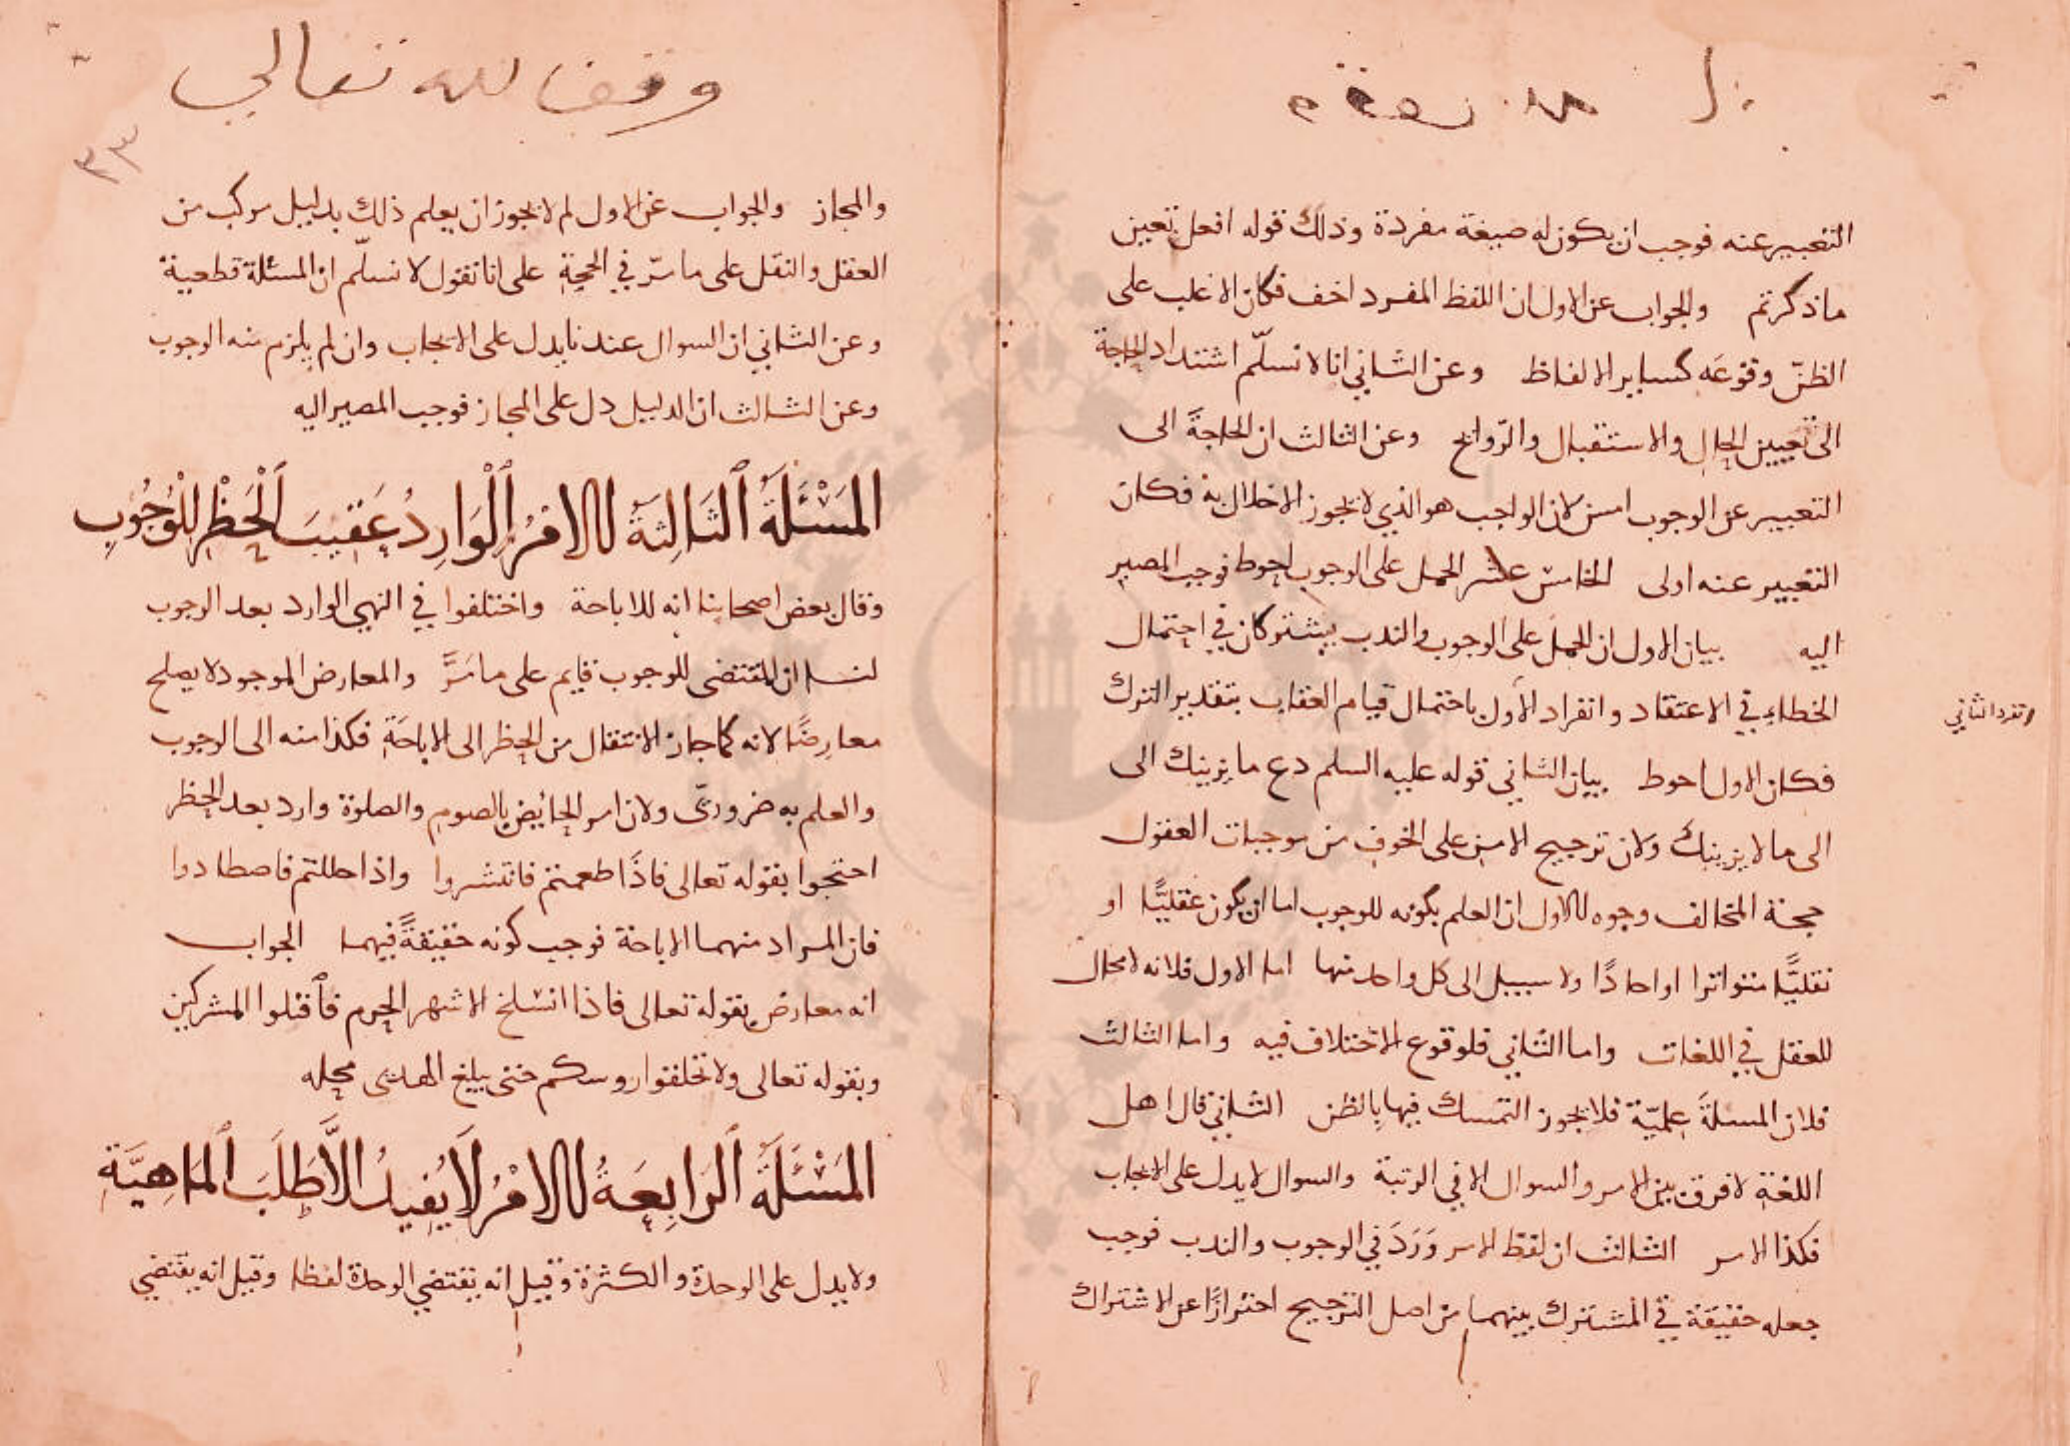 التعبير عنه فوجب ان يكون له صيغة مفردة وذلك قوله افعل تعين
ماذكرتم والجواب عن الاول ان اللفظ المفرد اخف فكان الاغلب على
الظنّ وقوعَه كساير الالفاظ وعن الثاني انا لا نسلّم اشتداد الحاجة
الى تعيين الحال والاستقبال والروايح وعن الثالث ان الحاجةَ الى
التعبير عن الوجوب امس لان الواجب هو الذي لا يجوز الاخلال به فكان
التعبير عنه اولى الخامس عشر الحمل على الوجوب احوط فوجب المصير
اليه بيان الاول ان الحمل على الوجوب والندب يشتركان في احتمال
الخطاء في الاعتقاد وانفراد الأول باحتمال قيام العقاب بتقدير الترك
وتفرد الثاني
فكان الاول احوط بيان الثاني قوله عليه السلم دع ما يريبك الى
الى ما لا يريبك ولان ترجيح الامن على الخوف من موجبات العقول
حجة المخالف وجوه الاول ان العلم بكونه للوجوب اما ان يكون عقليًّا او
نقليًّا متواترا او احادًا ولا سبيل الى كل واحد منها اما الاول فلانه لا مجال
للعقل في اللغات واما الثاني فلوقوع الاختلاف فيه واما الثالث
فلان المسلةَ علميّة فلا يجوز التمسك فيها بالظن الثاني قال اهل
اللغة لا فرق بين الامر والسوال الا في الرتبة والسوال لا يدل على الايجاب
فكذا الامر الثالث ان لفظ الامر وَرَدَ في الوجوب والندب فوجب
جعله حقيقة في المشترك بينهما من اصل الترجيح احترازًا عن الاشتراك
وقف لله تعالى
٣٣
والمجاز والجواب عن الاول لم لا يجوز ان يعلم ذلك بدليل مركب من
العقل والنقل على ما مرّ في الحجة على انا نقول لا نسلّم ان المسئلة قطعية
وعن الثاني ان السوال عندنا يدل على الايجاب وان لم يلزم منه الوجوب
وعن الثالث ان الدليل دل على المجاز فوجب المصير اليه
المَسْئَلَةُ الثَالِثَةُ الامْرُ الْوَارِدُ عَقِيبَ الْحَظْرِ لِلْوُجُوبِ
وقال بعض اصحابنا انه للاباحة واختلفوا في النهي الوارد بعد الوجوب
لنا ان المقتضى للوجوب قايم على ما مَرَّ والمعارض الموجود لا يصلح
معارضًا لانه كما جاز الانتقال من الحظر الى الاباحَة فكذا منه الى الوجوب
والعلم به ضروريّ ولان امر الحايض بالصوم والصلوة وارد بعد الحظر
احتجوا بقوله تعالى فاذَا طعمتم فانتشروا واذا حللتم فاصطادوا
فان المراد منهما الاباحة فوجب كونه حقيقةً فيهما الجواب
انه معارض بقوله تعالى فاذا انسلخ الاشهر الحرم فٱقتلوا المشركين
وبقوله تعالى ولا تحلقوا روسكم حتى يبلغ الهدى محله
المَسْئَلَةُ الرَابِعَةُ الامْرُ لَا يُفِيدُ الَّا طَلَبَ المَاهِيَّةِ
ولا يدل على الوحدة والكثرة وقيل انه يقتضي الوحدة لفظا وقيل انه يقتضي